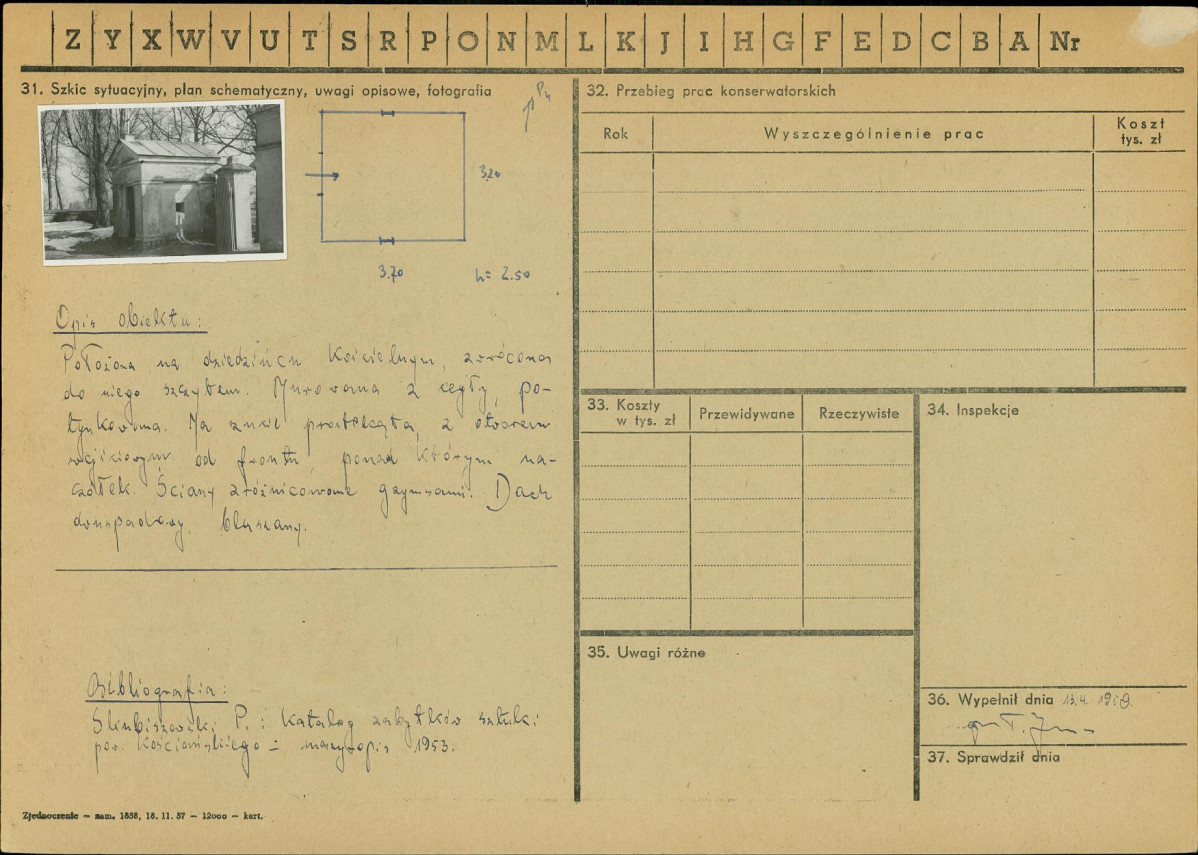 Z Y X W V U T S R P O N M L K J I H G F E D C B A Nr
31. Szkic sytuacyjny, plan schematyczny, uwagi opisowe, fotografia
Pn
3.20
3.70
h= 2.50
Opis obiektu:
Położona na dziedzińcu kościelnym, zwrócona
do niego szczytem. Murowana z cegły, po-
tynkowana. Na rzucie prostokąta, z otworem
wejściowym od frontu, ponad którym na-
czółek. Ściany zróżnicowane gzymsami. Dach
dwuspadowy, blaszany.
Bibliografia:
P.: Katalog zabytków sztuki
pow. Kościańskiego - maszynopis 1953.
Zjednoczenie — zam. 1858, 18. 11. 57 — 12000 — kart.
32. Przebieg prac konserwatorskich
Rok
Wyszczególnienie prac
Koszt
tys. zł
33. Koszty
w tys. zł
Przewidywane
Rzeczywiste
34. Inspekcje
35. Uwagi różne
36. Wypełnił dnia 13.4.
37. Sprawdził dnia